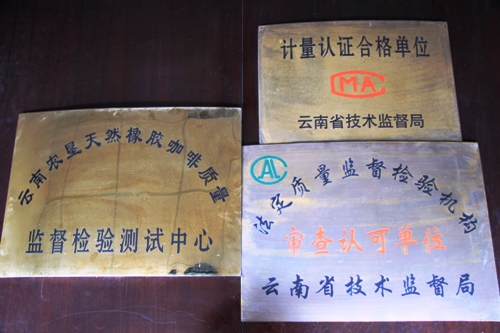 云南农垦天然橡胶咖啡质量
监督检验测试中心
计量认证合格单位
CMA
云南省技术监督局
CAL
法定质量监督检验机构
审查认可单位
云南省技术监督局